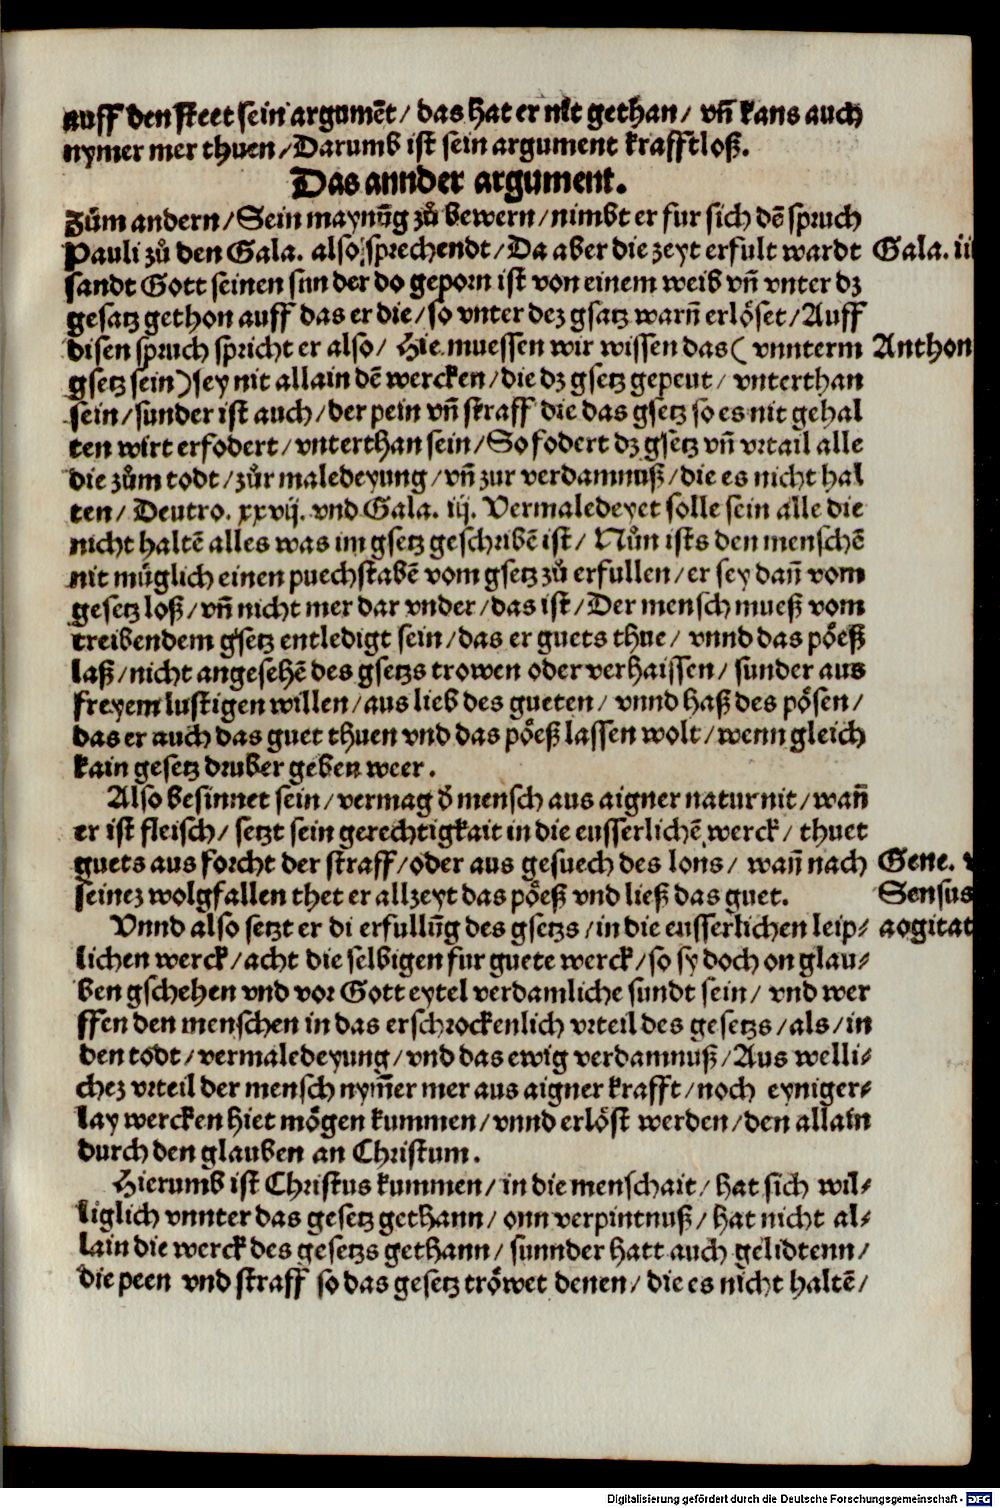 auff den steet sein argumēt/ das hat er nit gethan/ vñ kans auch
nymer mer thuen/Darumb ist sein argument krafftloß.
Das annder argument.
Zům andern/Sein maynūg zů bewern/nimbt er fur sich dē spruch
Pauli zů den Gala. also sprechendt/Da aber die zeyt erfult wardt
Gala. ii
sandt Gott seinen sun der do geporn ist von einem weib vñ vnter dz
gesatz gethon auff das er die/so vnter dez gsatz warñ erlöset/Auff
disen spruch spricht er also/ Hie muessen wir wissen das( vnnterm
Anthon
gsetz sein)sey nit allain dē wercken/die dz gsetz gepeut/ vnterthan
sein/sunder ist auch/der pein vñ straff die das gsetz so es nit gehal
ten wirt erfodert/vnterthan sein/So fodert dz gsetz vñ vrtail alle
die zům todt/zůr maledeyung/vñ zur verdamnuß/die es nicht hal
ten/ Deutro. xxvij. vnd Gala. iij. Vermaledeyet solle sein alle die
nicht haltē alles was im gsetz geschribē ist/ Nůn ists den menschē
nit müglich einen puechstabē vom gsetz zů erfullen/er sey dañ vom
gesetz loß/vñ nicht mer dar vnder/das ist/Der mensch mueß vom
treibendem gsetz entledigt sein/das er guets thue/ vnnd das pöeß
laß/nicht angesehē des gsetzs trowen oder verhaissen/sunder aus
freyem lustigen willen/aus lieb des gueten/ vnnd haß des pösen/
das er auch das guet thuen vnd das pöeß lassen wolt/wenn gleich
kain gesetz druber geben weer.
Also besinnet sein/vermag d̄ mensch aus aigner natur nit/wañ
er ist fleisch/ setzt sein gerechtigkait in die eusserlichē werck/ thuet
guets aus forcht der straff/oder aus gesuech des lons/ wañ nach
Gene. v
seinez wolgfallen thet er allzeyt das pöeß vnd ließ das guet.
Sensus
Vnnd also setzt er di erfullūg des gsetzs/in die eusserlichen leip⸗
aogitat
lichen werck/acht die selbigen fur guete werck/so sy doch on glau⸗
ben gschehen vnd vor Gott eytel verdamliche sundt sein/ vnd wer
ffen den menschen in das erschrockenlich vrteil des gesetzs/als/in
den todt/vermaledeyung/vnd das ewig verdamnuß/Aus welli⸗
chez vrteil der mensch nym̄er mer aus aigner krafft/noch eyniger⸗
lay wercken hiet mögen kummen/vnnd erlöst werden/den allain
durch den glauben an Christum.
Hierumb ist Christus kummen/in die menschait/hat sich wil⸗
liglich vnnter das gesetz gethann/ onn verpintnuß/hat nicht al⸗
lain die werck des gesetzs gethann/ sunnder hatt auch gelidtenn/
die peen vnd straff so das gesetz tröwet denen/die es nicht haltē/
Digitalisierung gefördert durch die Deutsche Forschungsgemeinschaft - DFG